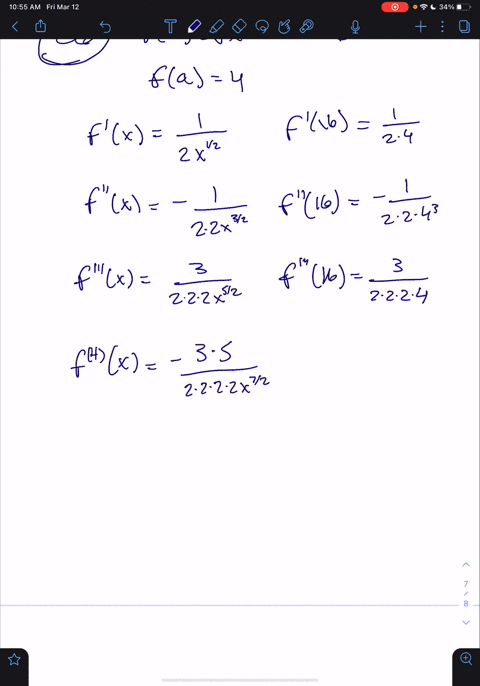 10:55 AM Fri Mar 12
34%
f(a) = 4
f'(x) = 1 / 2x^{1/2} f'(16) = 1 / 2·4
f''(x) = - 1 / 2·2x^{3/2} f''(16) = - 1 / 2·2·4^3
f'''(x) = 3 / 2·2·2x^{5/2} f'''(16) = 3 / 2·2·2·4
f^{(4)}(x) = - 3·5 / 2·2·2·2x^{7/2}
7
/
8